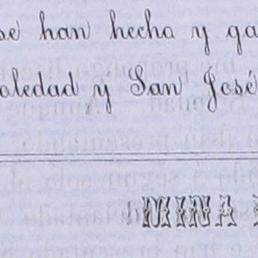 se han hecho y ga
oledad y San José
MINA